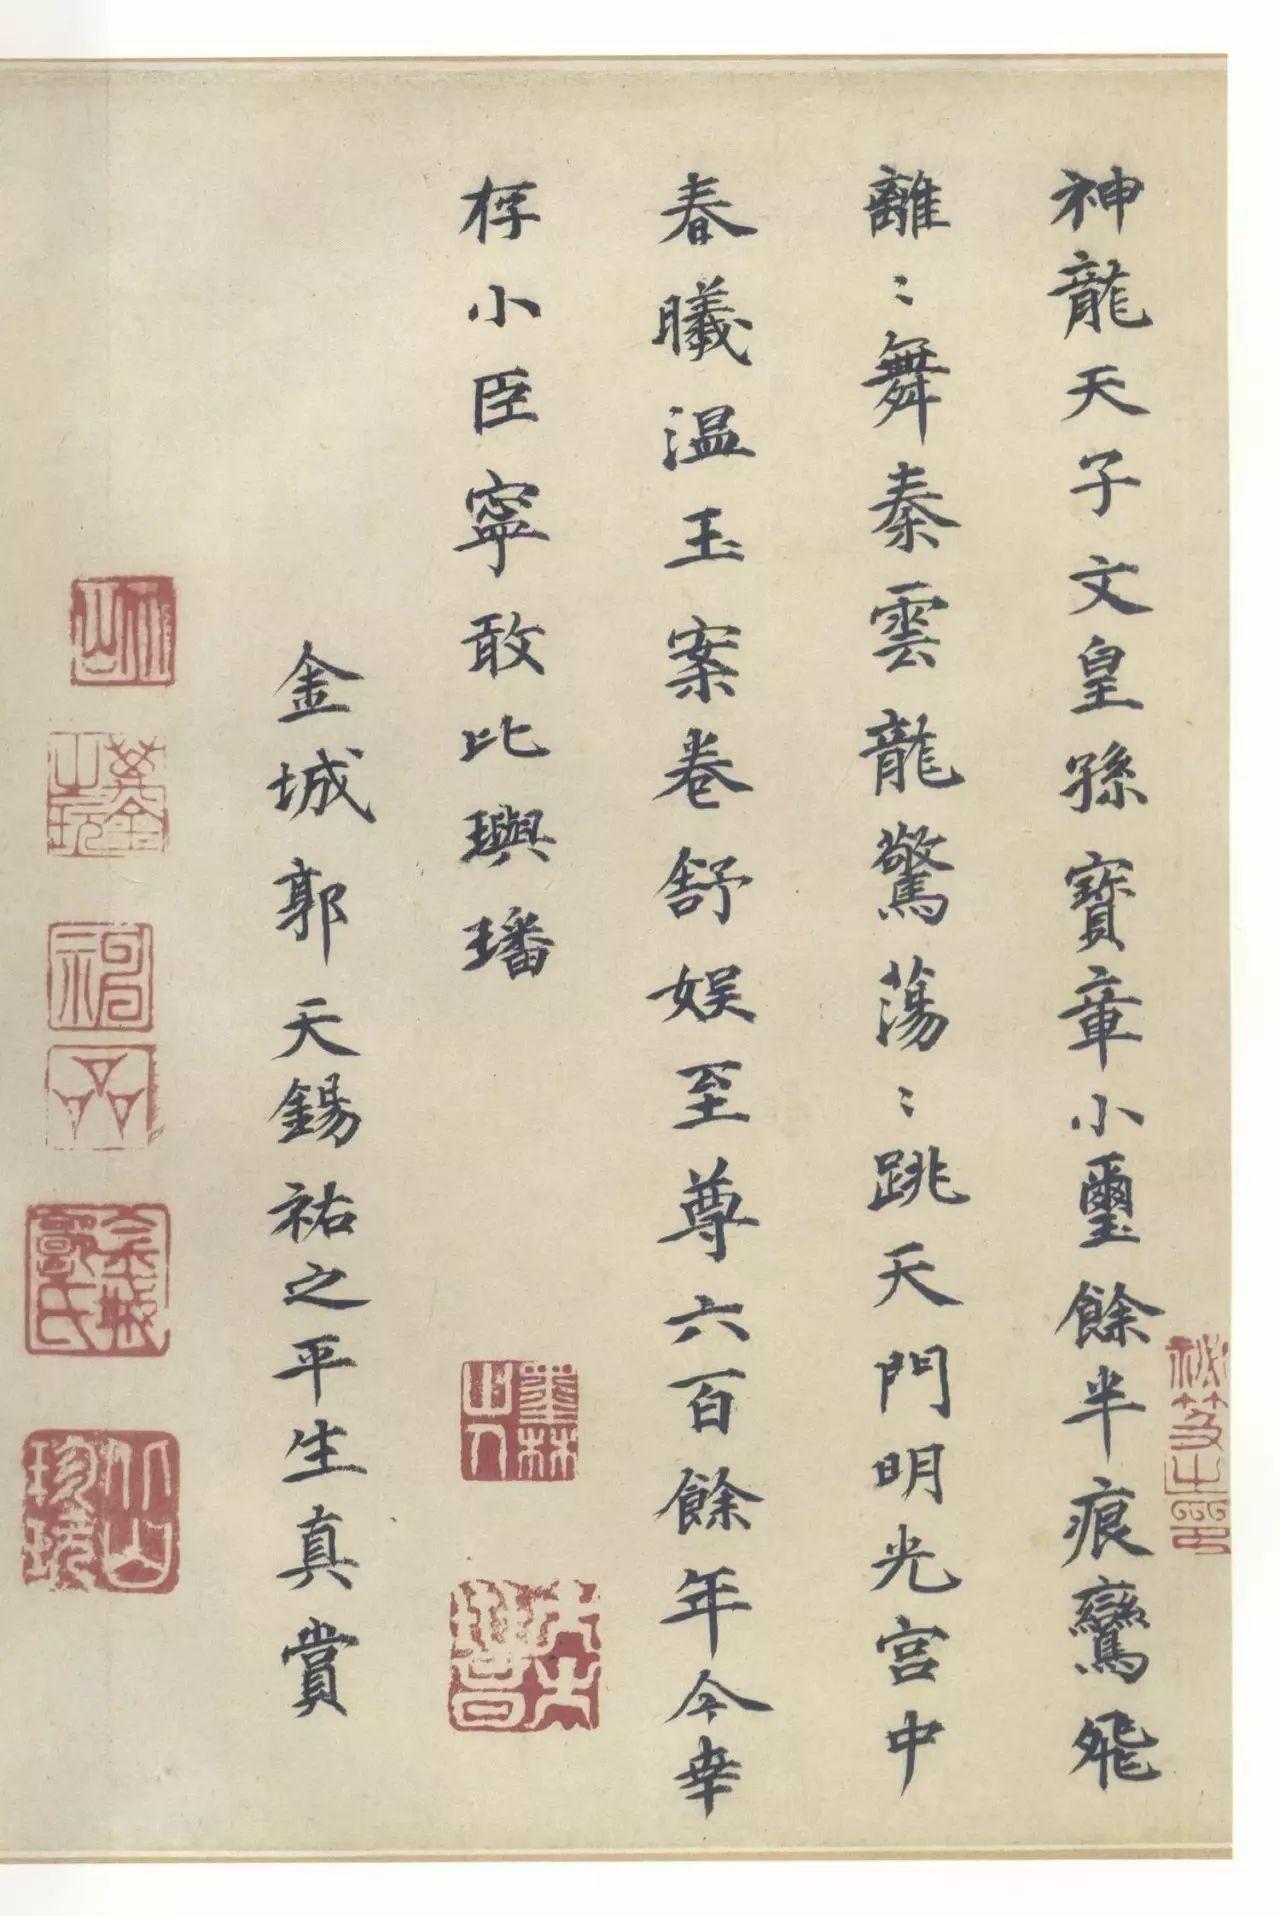 神龍天子文皇孫寶章小璽餘半痕鸞飛
離〻舞秦雲龍驚蕩〻跳天門明光宮中
春曦温玉案卷舒娱至尊六百餘年今幸
存小臣寧敢比璵璠
金城郭天錫祐之平生真賞
金城郭氏